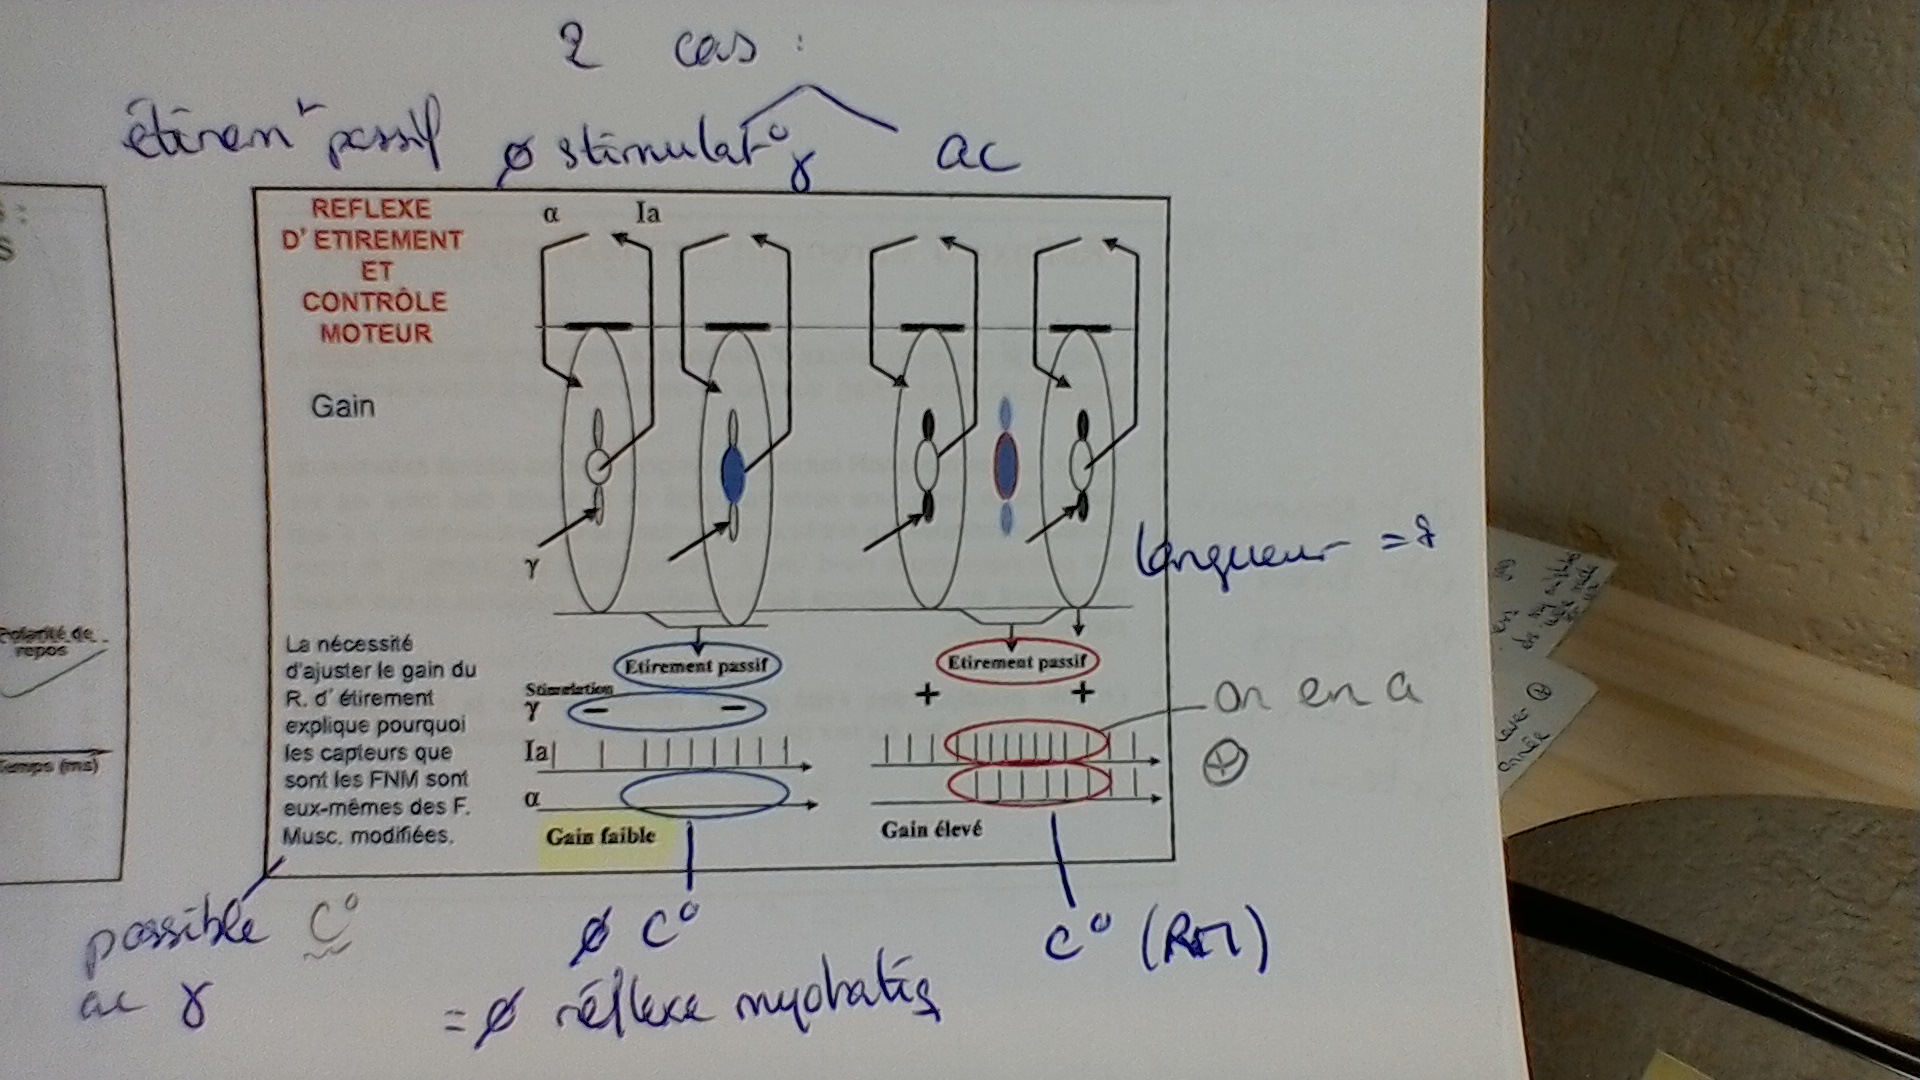 2 cas :
étiremt passif ø stimulat° γ ac
REFLEXE
D'ETIREMENT
ET
CONTRÔLE
MOTEUR
α Ia
Gain
γ
longueur =
La nécessité
d'ajuster le gain du
R. d'étirement
explique pourquoi
les capteurs que
sont les FNM sont
eux-mêmes des F.
Musc. modifiées.
Etirement passif
Stimulation
γ − −
Ia
α
Gain faible
Etirement passif
+ +
Gain élevé
on en a
⊕
Polarité de
repos
Temps (ms)
possible C°
ac γ
ø C°
= ø réflexe myotatiq
C° (RM)